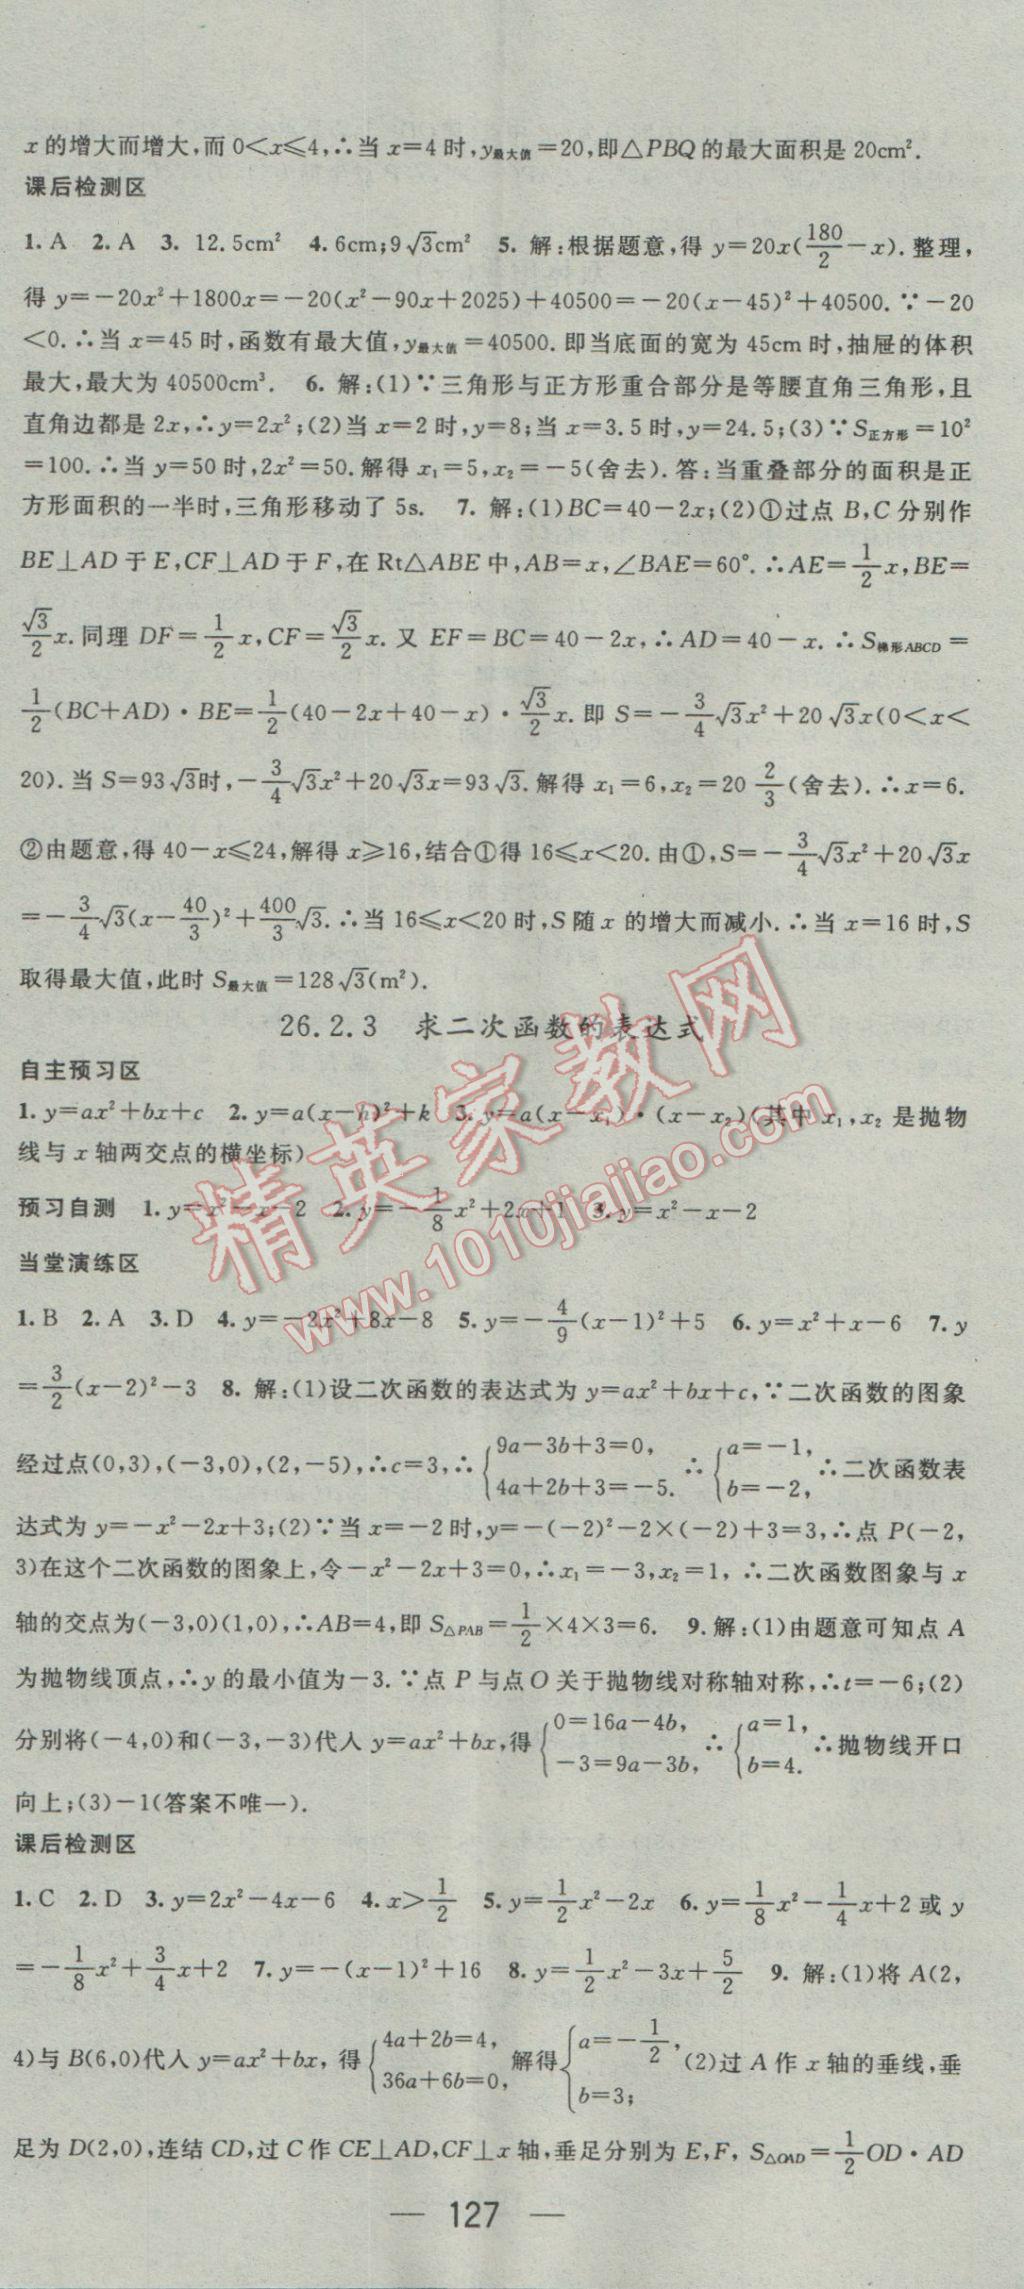 x的增大而增大,而0<x⩽4,∴当x=4时,y最大值=20,即△PBQ的最大面积是20cm².
课后检测区
1. A 2. A 3. 12.5cm² 4. 6cm;9√3cm² 5. 解:根据题意,得y=20x(180/2−x).整理,
得y=−20x²+1800x=−20(x²−90x+2025)+40500=−20(x−45)²+40500.∵−20
<0.∴当x=45时,函数有最大值,y最大值=40500.即当底面的宽为45cm时,抽屉的体积
最大,最大为40500cm³. 6. 解:(1)∵三角形与正方形重合部分是等腰直角三角形,且
直角边都是2x,∴y=2x²;(2)当x=2时,y=8;当x=3.5时,y=24.5;(3)∵S正方形=10²
=100.∴当y=50时,2x²=50.解得x₁=5,x₂=−5(舍去).答:当重叠部分的面积是正
方形面积的一半时,三角形移动了5s. 7. 解:(1)BC=40−2x;(2)①过点B,C分别作
BE⊥AD于E,CF⊥AD于F,在Rt△ABE中,AB=x,∠BAE=60°.∴AE=1/2x,BE=
√3/2x.同理DF=1/2x,CF=√3/2x.又EF=BC=40−2x,∴AD=40−x.∴S梯形ABCD=
1/2(BC+AD)·BE=1/2(40−2x+40−x)·√3/2x.即S=−3/4√3x²+20√3x(0<x<
20).当S=93√3时,−3/4√3x²+20√3x=93√3.解得x₁=6,x₂=20 2/3(舍去).∴x=6.
②由题意,得40−x⩽24,解得x⩾16,结合①得16⩽x<20.由①,S=−3/4√3x²+20√3x
=−3/4√3(x−40/3)²+400/3√3.∴当16⩽x<20时,S随x的增大而减小.∴当x=16时,S
取得最大值,此时S最大值=128√3(m²).
26.2.3 求二次函数的表达式
自主预习区
1. y=ax²+bx+c 2. y=a(x−h)²+k 3. y=a(x−x₁)·(x−x₂)(其中x₁,x₂是抛物
线与x轴两交点的横坐标)
预习自测 1. y=x²−x−2 2. y=−1/8x²+2x+1 3. y=x²−x−2
当堂演练区
1. B 2. A 3. D 4. y=−2x²+8x−8 5. y=−4/9(x−1)²+5 6. y=x²+x−6 7. y
=3/2(x−2)²−3 8. 解:(1)设二次函数的表达式为y=ax²+bx+c,∵二次函数的图象
经过点(0,3),(−3,0),(2,−5),∴c=3,∴{9a−3b+3=0, 4a+2b+3=−5. ∴{a=−1, b=−2, ∴二次函数表
达式为y=−x²−2x+3;(2)∵当x=−2时,y=−(−2)²−2×(−2)+3=3,∴点P(−2,
3)在这个二次函数的图象上,令−x²−2x+3=0,∴x₁=−3,x₂=1, ∴二次函数图象与x
轴的交点为(−3,0)(1,0),∴AB=4,即S△PAB=1/2×4×3=6. 9.解:(1)由题意可知点A
为抛物线顶点,∴y的最小值为−3.∵点P与点O关于抛物线对称轴对称,∴t=−6;(2)
分别将(−4,0)和(−3,−3)代人y=ax²+bx,得{0=16a−4b, −3=9a−3b, ∴{a=1, b=4. ∴抛物线开口
向上;(3)−1(答案不唯一).
课后检测区
1. C 2. D 3. y=2x²−4x−6 4. x>1/2 5. y=1/2x²−2x 6. y=1/8x²−1/4x+2或y
=−1/8x²+3/4x+2 7. y=−(x−1)²+16 8. y=1/2x²−3x+5/2 9. 解:(1)将A(2,
4)与B(6,0)代人y=ax²+bx,得{4a+2b=4, 36a+6b=0, 解得{a=−1/2, b=3; (2)过A作x轴的垂线,垂
足为D(2,0),连结CD,过C作CE⊥AD,CF⊥x轴,垂足分别为E,F, S△OAD=1/2OD·AD
— 127 —
精英家教网
www.1010jiajiao.com